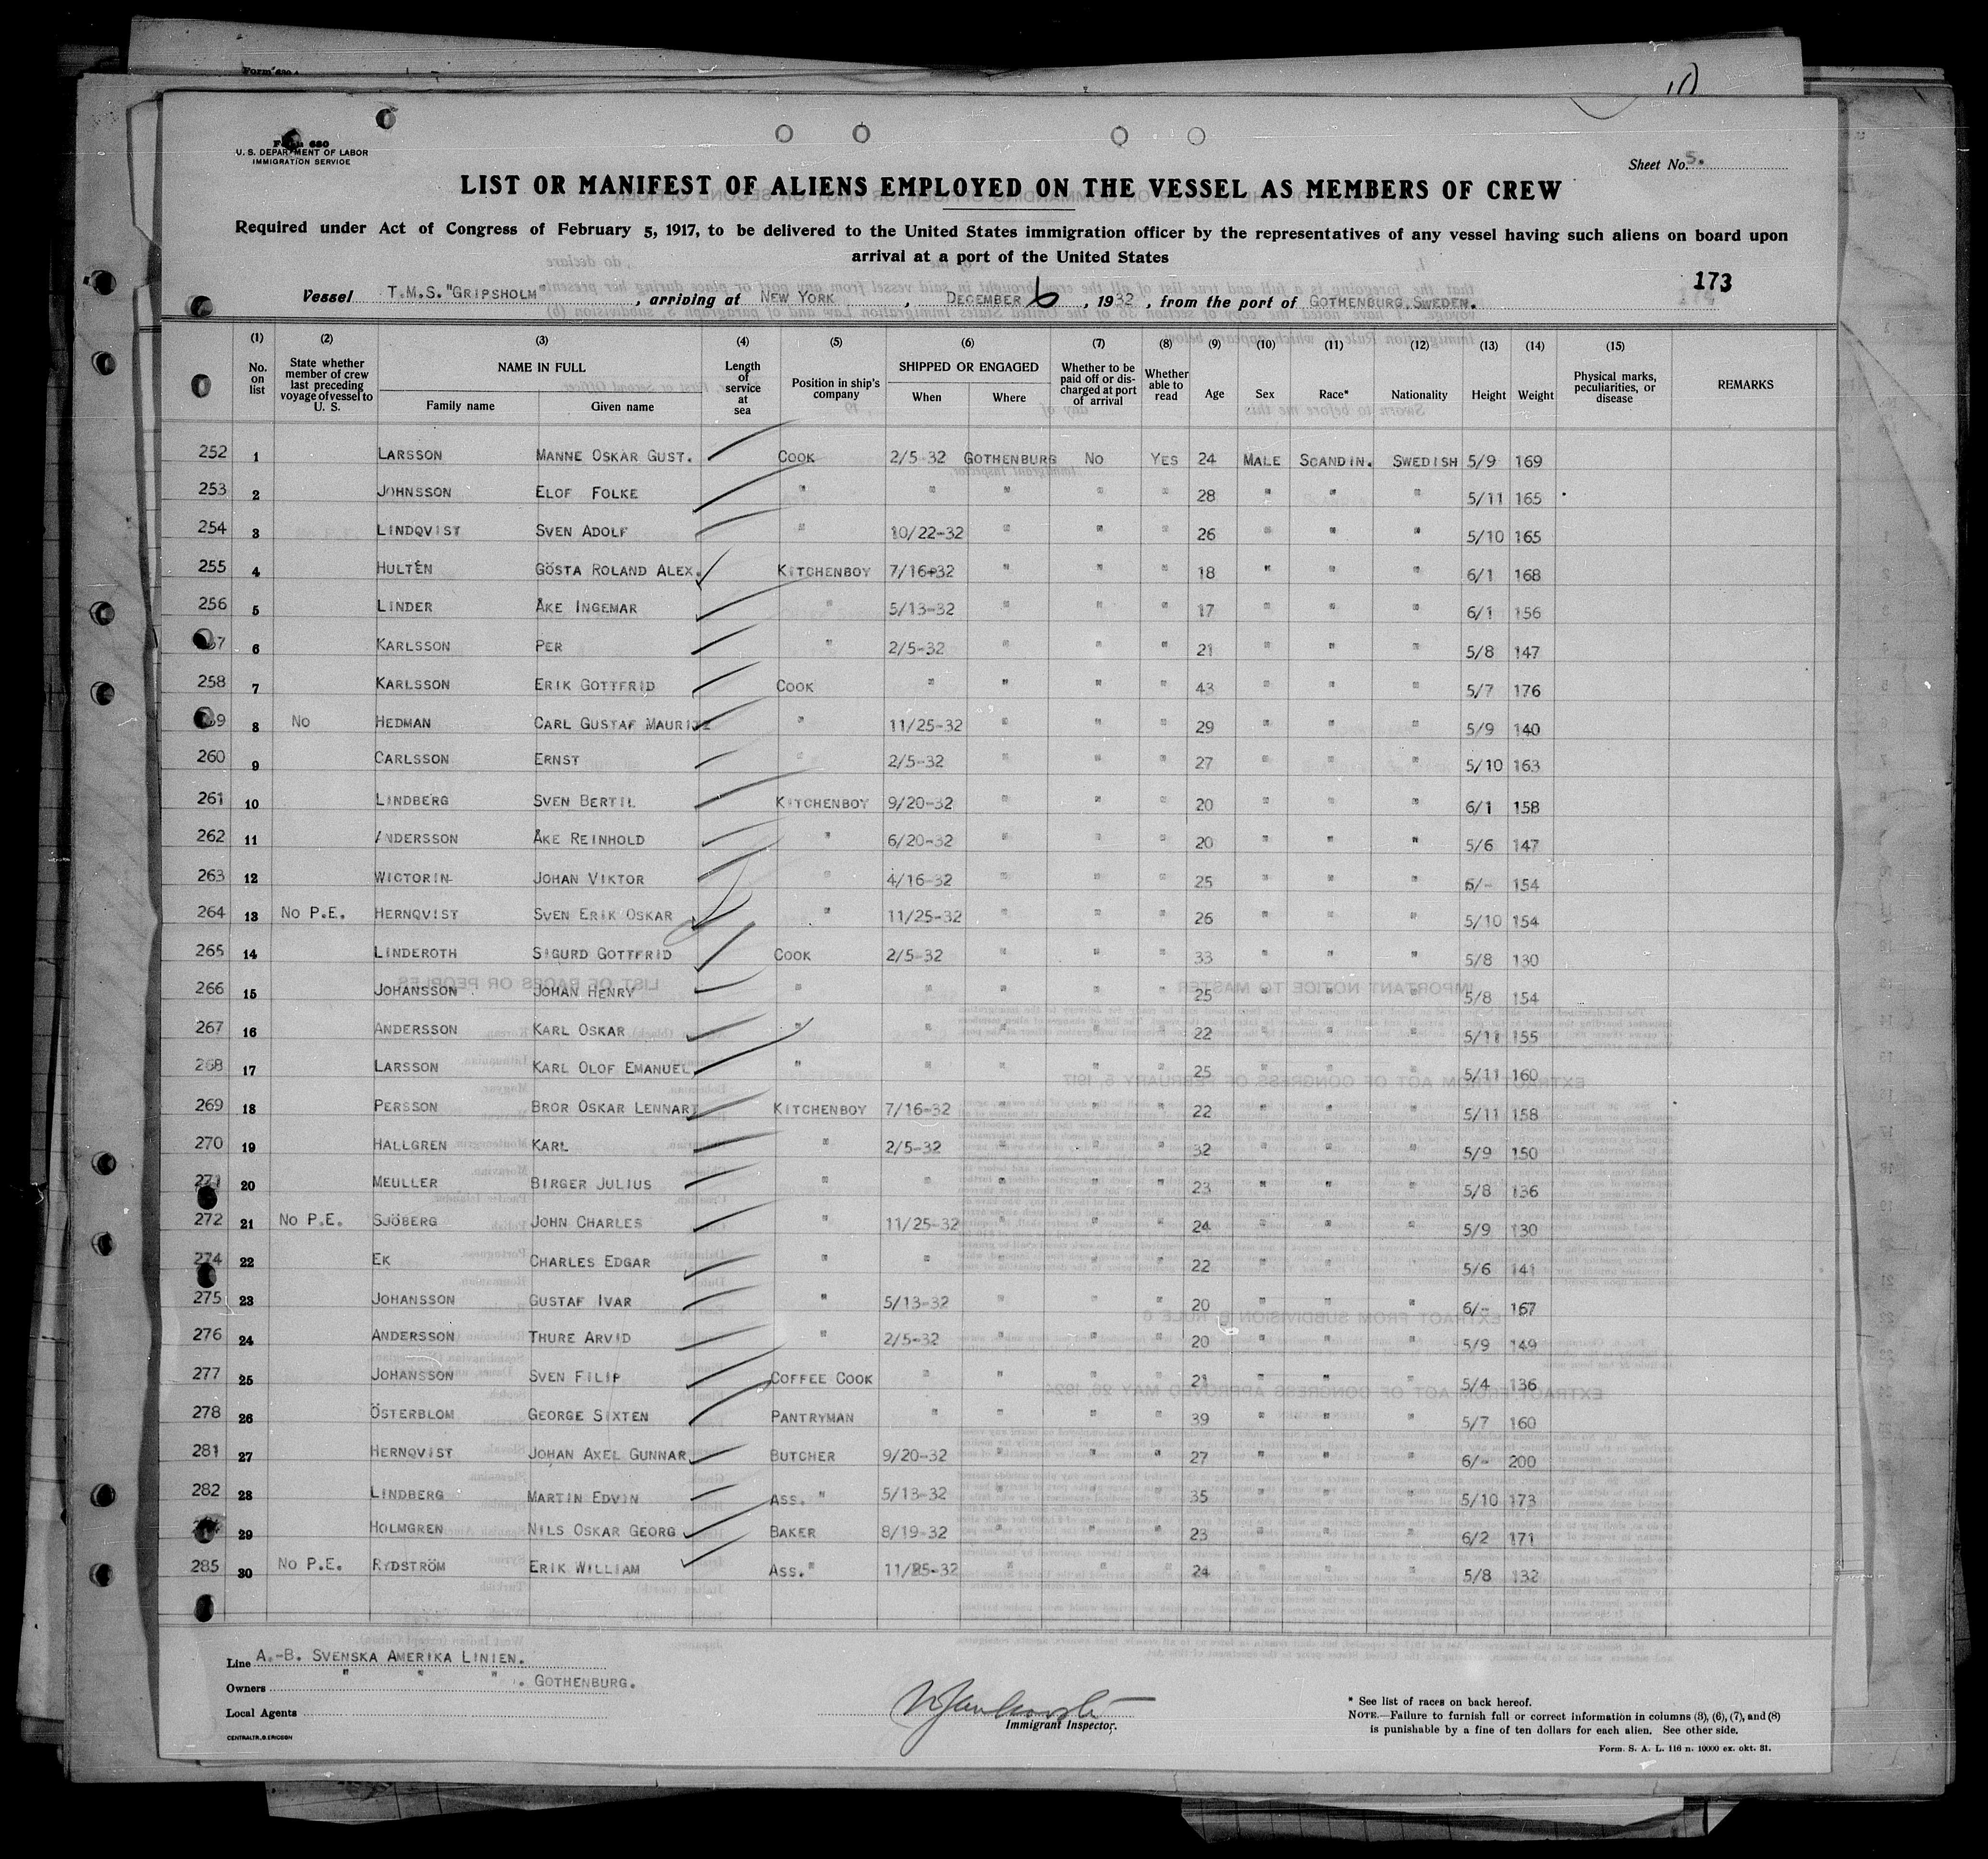 Form 680
U. S. DEPARTMENT OF LABOR
IMMIGRATION SERVICE
Sheet No. 5.
LIST OR MANIFEST OF ALIENS EMPLOYED ON THE VESSEL AS MEMBERS OF CREW
Required under Act of Congress of February 5, 1917, to be delivered to the United States immigration officer by the representatives of any vessel having such aliens on board upon
arrival at a port of the United States
173
Vessel T.M.S. "GRIPSHOLM" , arriving at NEW YORK , DECEMBER 6 , 1932 , from the port of GOTHENBURG, SWEDEN.
(1) (2) (3) (4) (5) (6) (7) (8) (9) (10) (11) (12) (13) (14) (15)
No. on list State whether member of crew last preceding voyage of vessel to U. S. NAME IN FULL Family name Given name Length of service at sea Position in ship's company SHIPPED OR ENGAGED When Where Whether to be paid off or discharged at port of arrival Whether able to read Age Sex Race* Nationality Height Weight Physical marks, peculiarities, or disease REMARKS
252 1 LARSSON MANNE OSKAR GUST. COOK 2/5-32 GOTHENBURG NO YES 24 MALE SCANDIN. SWEDISH 5/9 169
253 2 JOHNSSON ELOF FOLKE " " " " " 28 " " " 5/11 165
254 3 LINDQVIST SVEN ADOLF " 10/22-32 " " " 26 " " " 5/10 165
255 4 HULTÉN GÖSTA ROLAND ALEX. KITCHENBOY 7/16-32 " " " 18 " " " 6/1 168
256 5 LINDER ÅKE INGEMAR " 5/13-32 " " " 17 " " " 6/1 156
6 KARLSSON PER " 2/5-32 " " " 21 " " " 5/8 147
258 7 KARLSSON ERIK GOTTFRID COOK " " " " 43 " " " 5/7 176
8 NO HEDMAN CARL GUSTAF MAURITZ " 11/25-32 " " " 29 " " " 5/9 140
260 9 CARLSSON ERNST " 2/5-32 " " " 27 " " " 5/10 163
261 10 LINDBERG SVEN BERTIL KITCHENBOY 9/20-32 " " " 20 " " " 6/1 158
262 11 ANDERSSON ÅKE REINHOLD " 6/20-32 " " " 20 " " " 5/6 147
263 12 WICTORIN JOHAN VIKTOR " 4/16-32 " " " 25 " " " 6/- 154
264 13 NO P.E. HERNQVIST SVEN ERIK OSKAR " 11/25-32 " " " 26 " " " 5/10 154
265 14 LINDEROTH SIGURD GOTTFRID COOK 2/5-32 " " " 33 " " " 5/8 130
266 15 JOHANSSON JOHAN HENRY " " " " " 25 " " " 5/8 154
267 16 ANDERSSON KARL OSKAR " " " " " 22 " " " 5/11 155
268 17 LARSSON KARL OLOF EMANUEL " " " " " 25 " " " 5/11 160
269 18 PERSSON BROR OSKAR LENNART KITCHENBOY 7/16-32 " " " 22 " " " 5/11 158
270 19 HALLGREN KARL " 2/5-32 " " " 32 " " " 5/9 150
271 20 MEULLER BIRGER JULIUS " " " " " 23 " " " 5/8 136
272 21 NO P.E. SJÖBERG JOHN CHARLES " 11/25-32 " " " 24 " " " 5/9 130
274 22 EK CHARLES EDGAR " " " " " 22 " " " 5/6 141
275 23 JOHANSSON GUSTAF IVAR " 5/13-32 " " " 20 " " " 6/- 167
276 24 ANDERSSON THURE ARVID " 2/5-32 " " " 20 " " " 5/9 149
277 25 JOHANSSON SVEN FILIP COFFEE COOK " " " " 21 " " " 5/4 136
278 26 ÖSTERBLOM GEORGE SIXTEN PANTRYMAN " " " " 39 " " " 5/7 160
281 27 HERNQVIST JOHAN AXEL GUNNAR BUTCHER 9/20-32 " " " 27 " " " 6/- 200
282 28 LINDBERG MARTIN EDVIN ASS. " 5/13-32 " " " 35 " " " 5/10 173
29 HOLMGREN NILS OSKAR GEORG BAKER 8/19-32 " " " 23 " " " 6/2 171
285 30 NO P.E. RYDSTRÖM ERIK WILLIAM ASS. " 11/25-32 " " " 24 " " " 5/8 132
Line A.-B. SVENSKA AMERIKA LINIEN.
Owners " " " . GOTHENBURG.
Local Agents
CENTRALTR, G. ERICSON
Immigrant Inspector.
* See list of races on back hereof.
NOTE.—Failure to furnish full or correct information in columns (3), (6), (7), and (8)
is punishable by a fine of ten dollars for each alien. See other side.
Form. S. A. L. 116 n. 10000 ex. okt. 31.